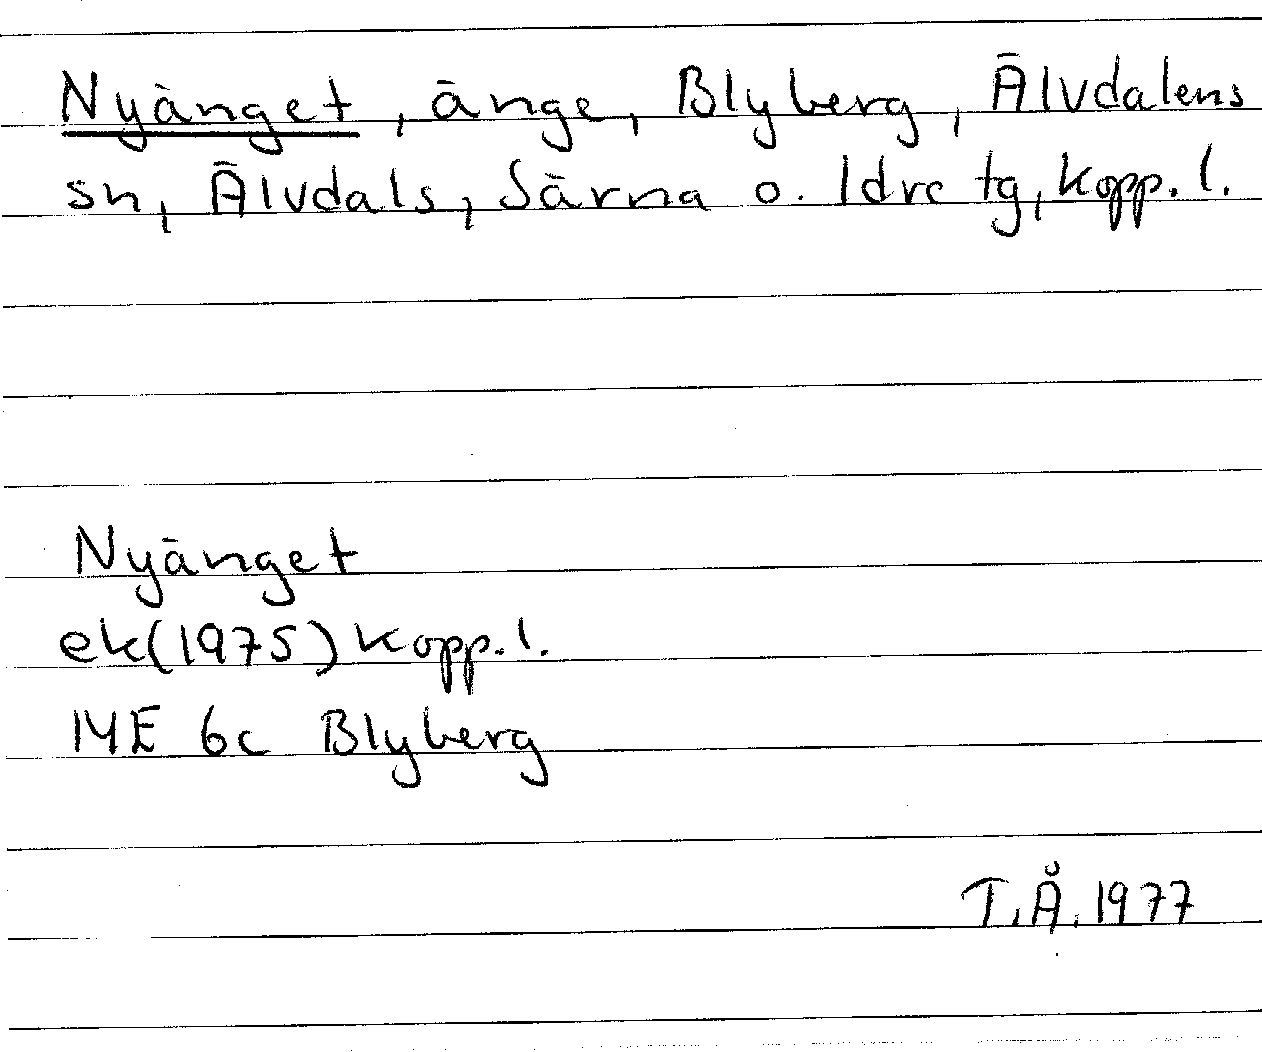 Nyänget, änge, Blyberg, Älvdalens
sn, Älvdals, Särna o. Idre tg, Kopp. l.
Nyänget
ek(1975) Kopp. l.
14E 6c Blyberg
T.Å. 1977